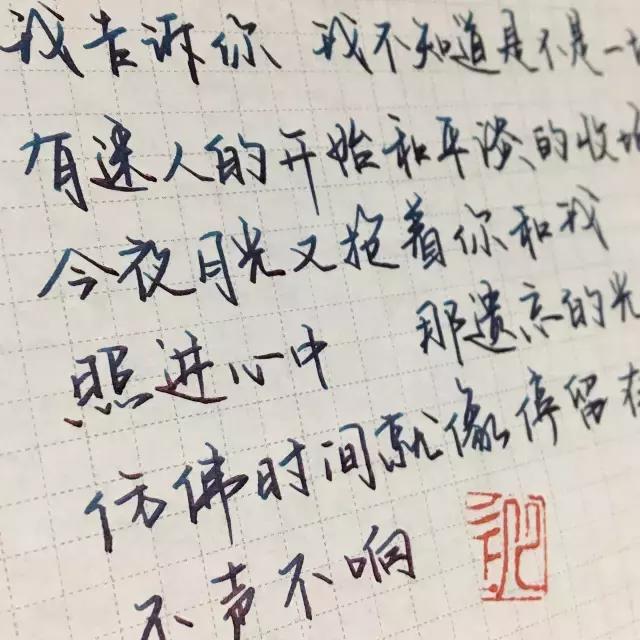 我告诉你 我不知道是不是一
有迷人的开始和平淡的收
今夜月光又抱着你和我
照进心中 那遗忘的光
仿佛时间就像停留在
不声不响